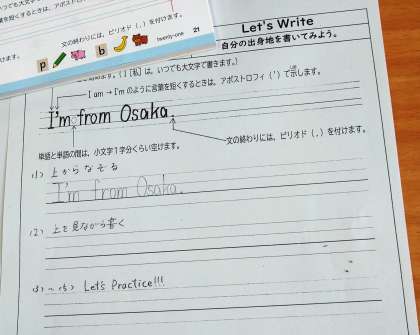 文の終わりには、ピリオド (.) を付けます。
けます。
p
b
twenty-one
21
Let's Write
自分の出身地を書いてみよう。
[私] は、いつでも大文字で書きます。)
I am → I'm のように言葉を短くするときは、アポストロフィ (') で示します。
I'm from Osaka.
文の終わりには、ピリオド (.) を付けます。
単語と単語の間は、小文字1字分くらい空けます。
(1) 上からなぞる
I'm from Osaka.
(2) 上を見ながら書く
(3)~(5) Let's Practice!!!